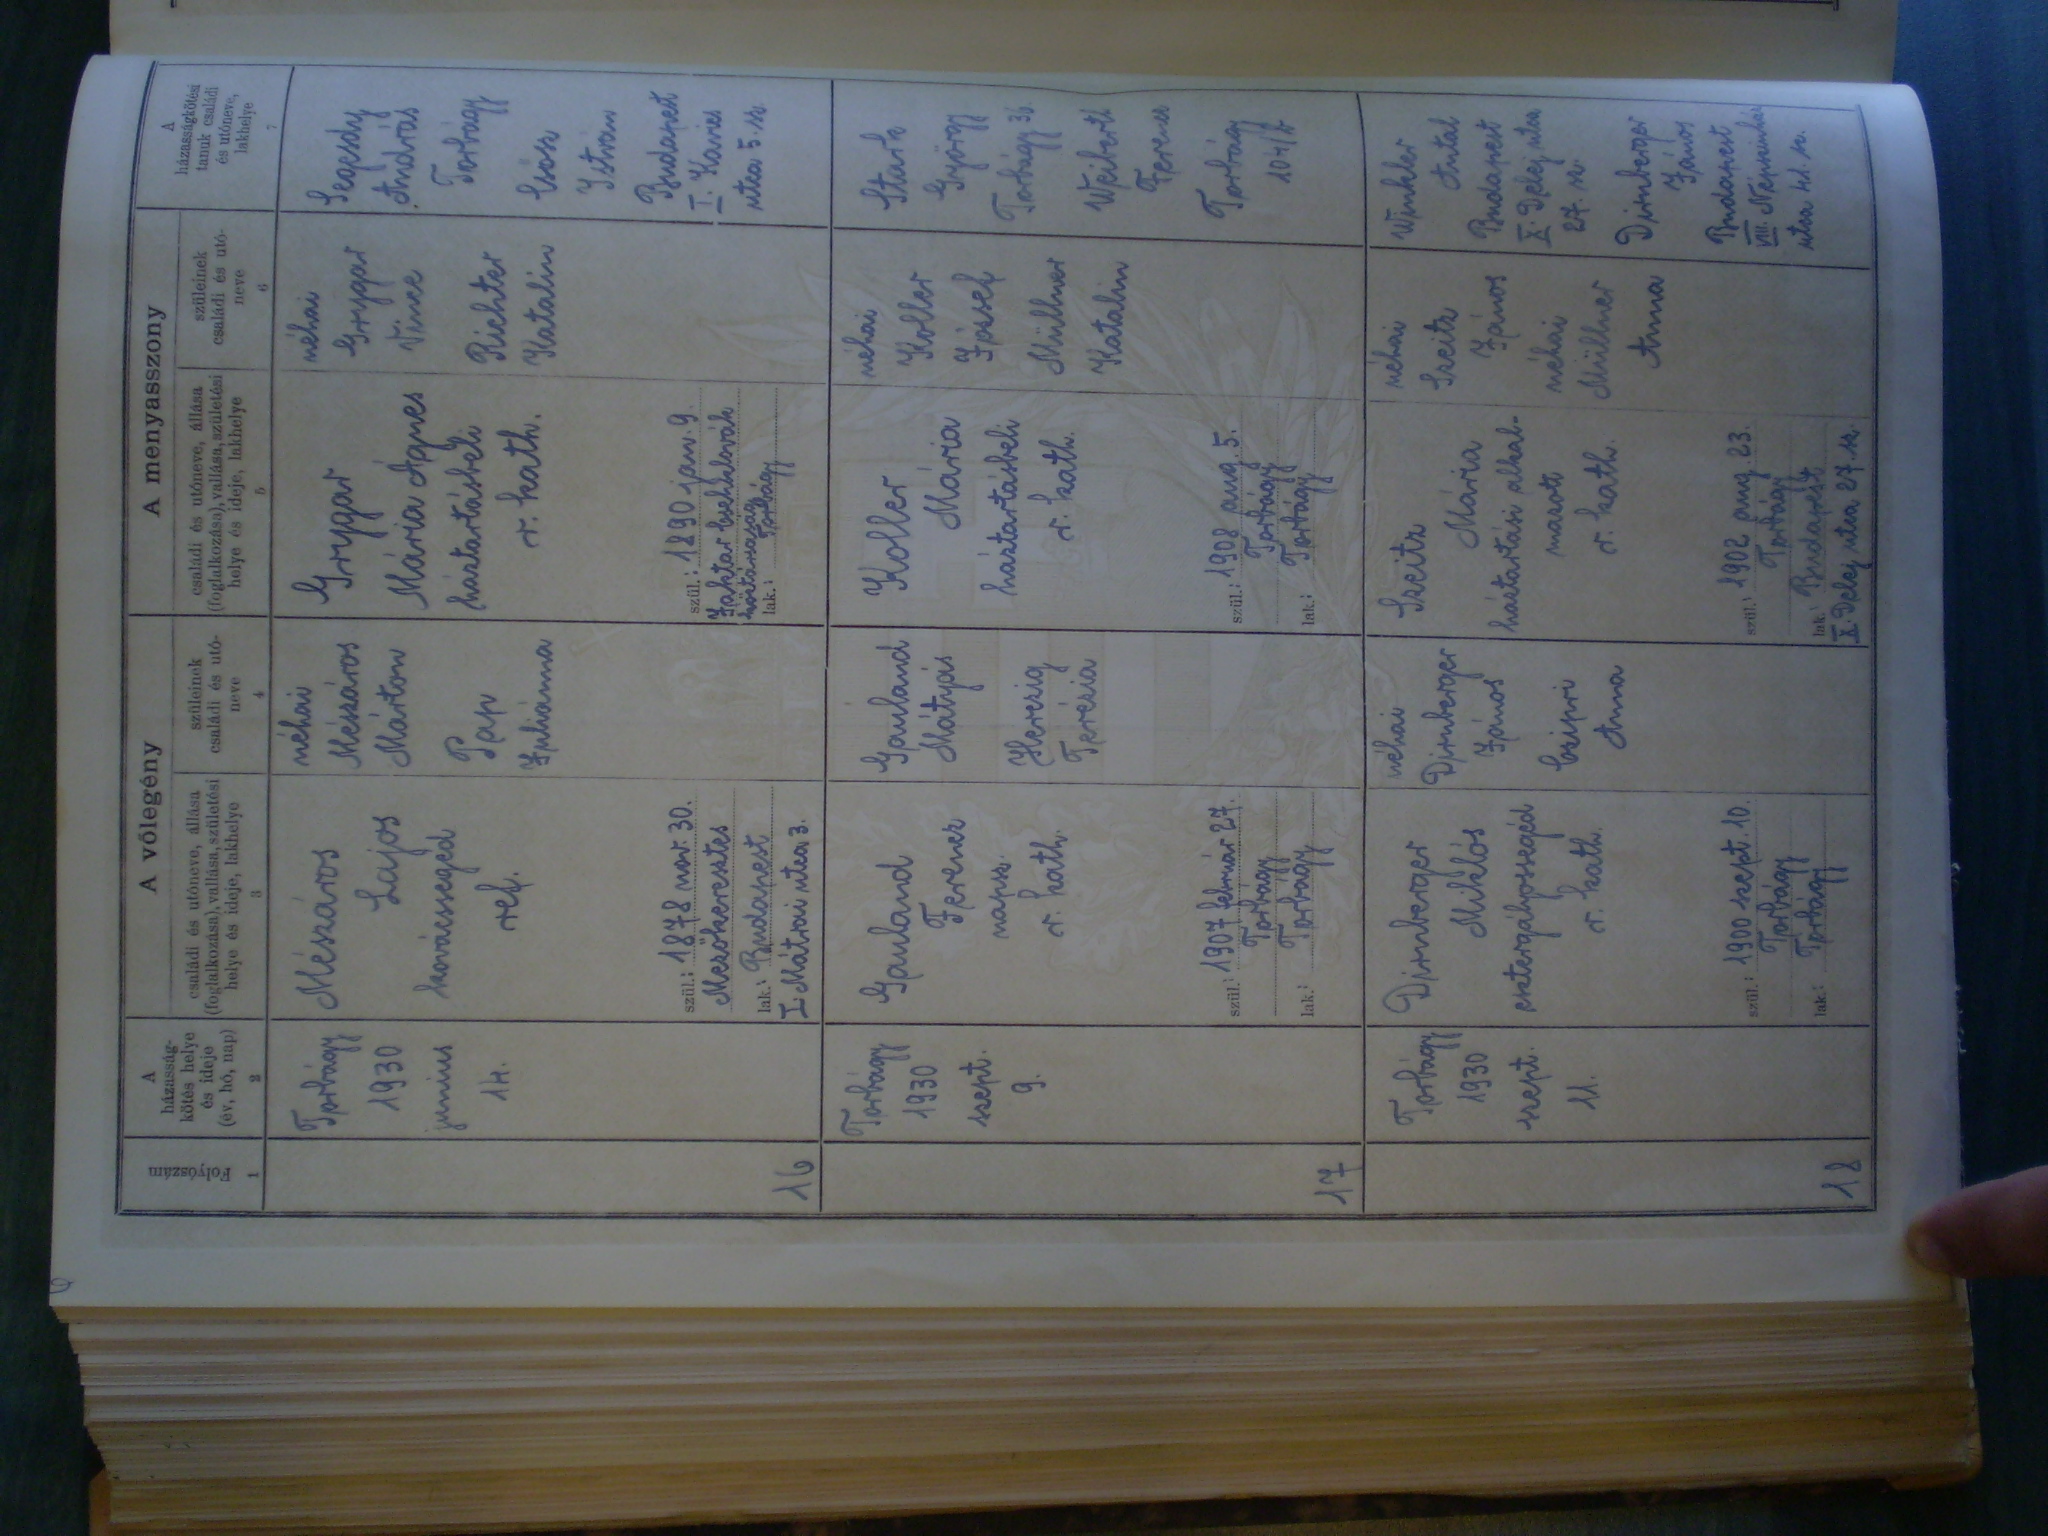 A vőlegény
A menyasszony
Folyószám
A
házasság-
kötés helye
és ideje
(év, hó, nap)
családi és utóneve, állása
(foglalkozása), vallása, születési
helye és ideje, lakhelye
szüleinek
családi és utó-
neve
családi és utóneve, állása
(foglalkozása), vallása, születési
helye és ideje, lakhelye
szüleinek
családi és utó-
neve
A
házasságkötési
tanuk családi
és utóneve,
lakhelye
1
2
3
4
5
6
7
16
Torbágy
1930
junius
14.
Mészáros
Lajos
kovácssegéd
ref.
szül.: 1878 nov. 30.
Mezőkeresztes
lak.: Budapest
I. Mátrai utca 3.
néhai
Mészáros
Márton
Pap
Juliánna
Grygar
Mária Ágnes
háztartásbeli
r. kath.
szül.: 1890 jan. 9.
köztársaság
lak.: Torbágy
néhai
Grygar
Vince
Richter
Katalin
Segesdy
András
Torbágy
Csósz
István
Budapest
utca 5. sz.
17
Torbágy
1930
szept.
9.
Gauland
Ferenc
naps.
r. kath.
szül.: 1907 február 27.
Torbágy
lak.: Torbágy
Gauland
Mátyás
Herczig
Terézia
Koller
Mária
háztartásbeli
r. kath.
szül.: 1908 aug. 5.
Torbágy
lak.: Torbágy
néhai
Koller
József
Müllner
Katalin
Stark
György
Torbágy 36.
Ferenc
Torbágy
18
Torbágy
1930
szept.
11.
Dirnberger
Miklós
esztergályossegéd
r. kath.
szül.: 1900 szept. 10.
Torbágy
lak.: Torbágy
néhai
Dirnberger
János
Czipri
Anna
Szeitz
Mária
háztartási alkal-
mazott
r. kath.
szül.: 1902 aug. 23.
Torbágy
lak.: Budapest
X. Delej utca 27. sz.
néhai
Szeitz
János
néhai
Müllner
Anna
Winkler
Antal
Budapest
X. Delej utca
27. sz.
Dirnberger
János
Budapest
VIII. Népszinház
utca 41. sz.